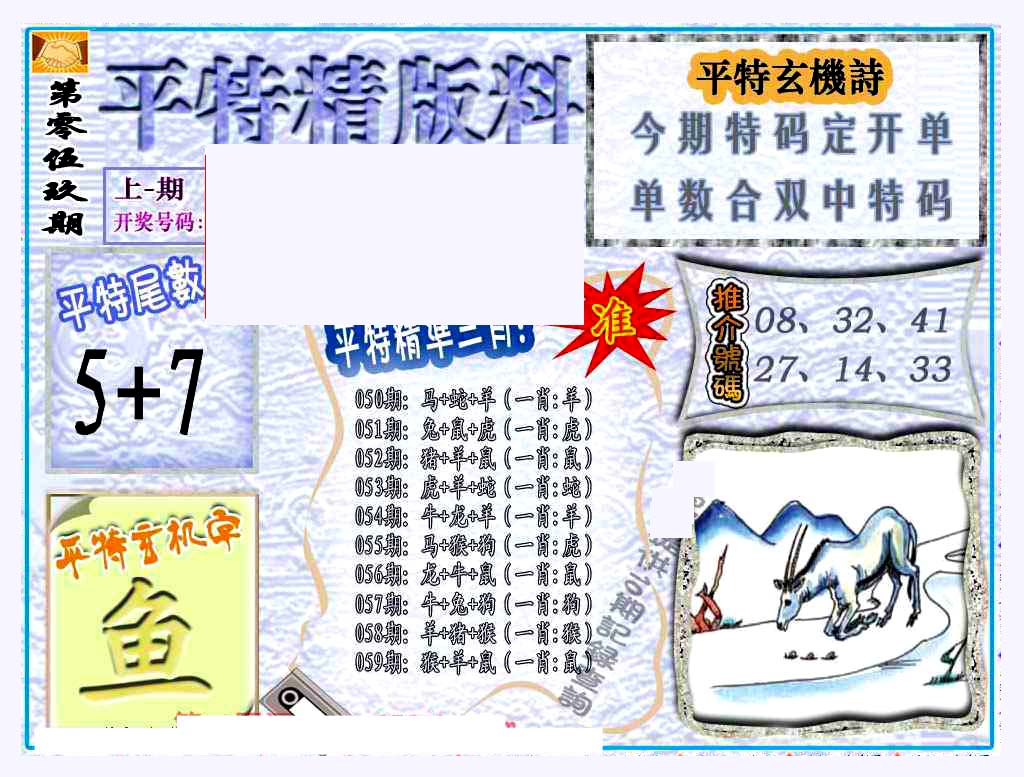 第零伍玖期
平特精版料
上-期
开奖号码:
平特玄機詩
今期特码定开单
单数合双中特码
平特尾數
5+7
平特精準三肖:
准
推介號碼
08、32、41
27、14、33
050期: 马+蛇+羊(一肖:羊)
051期: 兔+鼠+虎(一肖:虎)
052期: 猪+羊+鼠(一肖:鼠)
053期: 虎+羊+蛇(一肖:蛇)
054期: 牛+龙+羊(一肖:羊)
055期: 马+猴+狗(一肖:虎)
056期: 龙+牛+鼠(一肖:鼠)
057期: 牛+兔+狗(一肖:狗)
058期: 羊+猪+猴(一肖:猴)
059期: 猴+羊+鼠(一肖:鼠)
平特玄机字
鱼
期記錄查詢